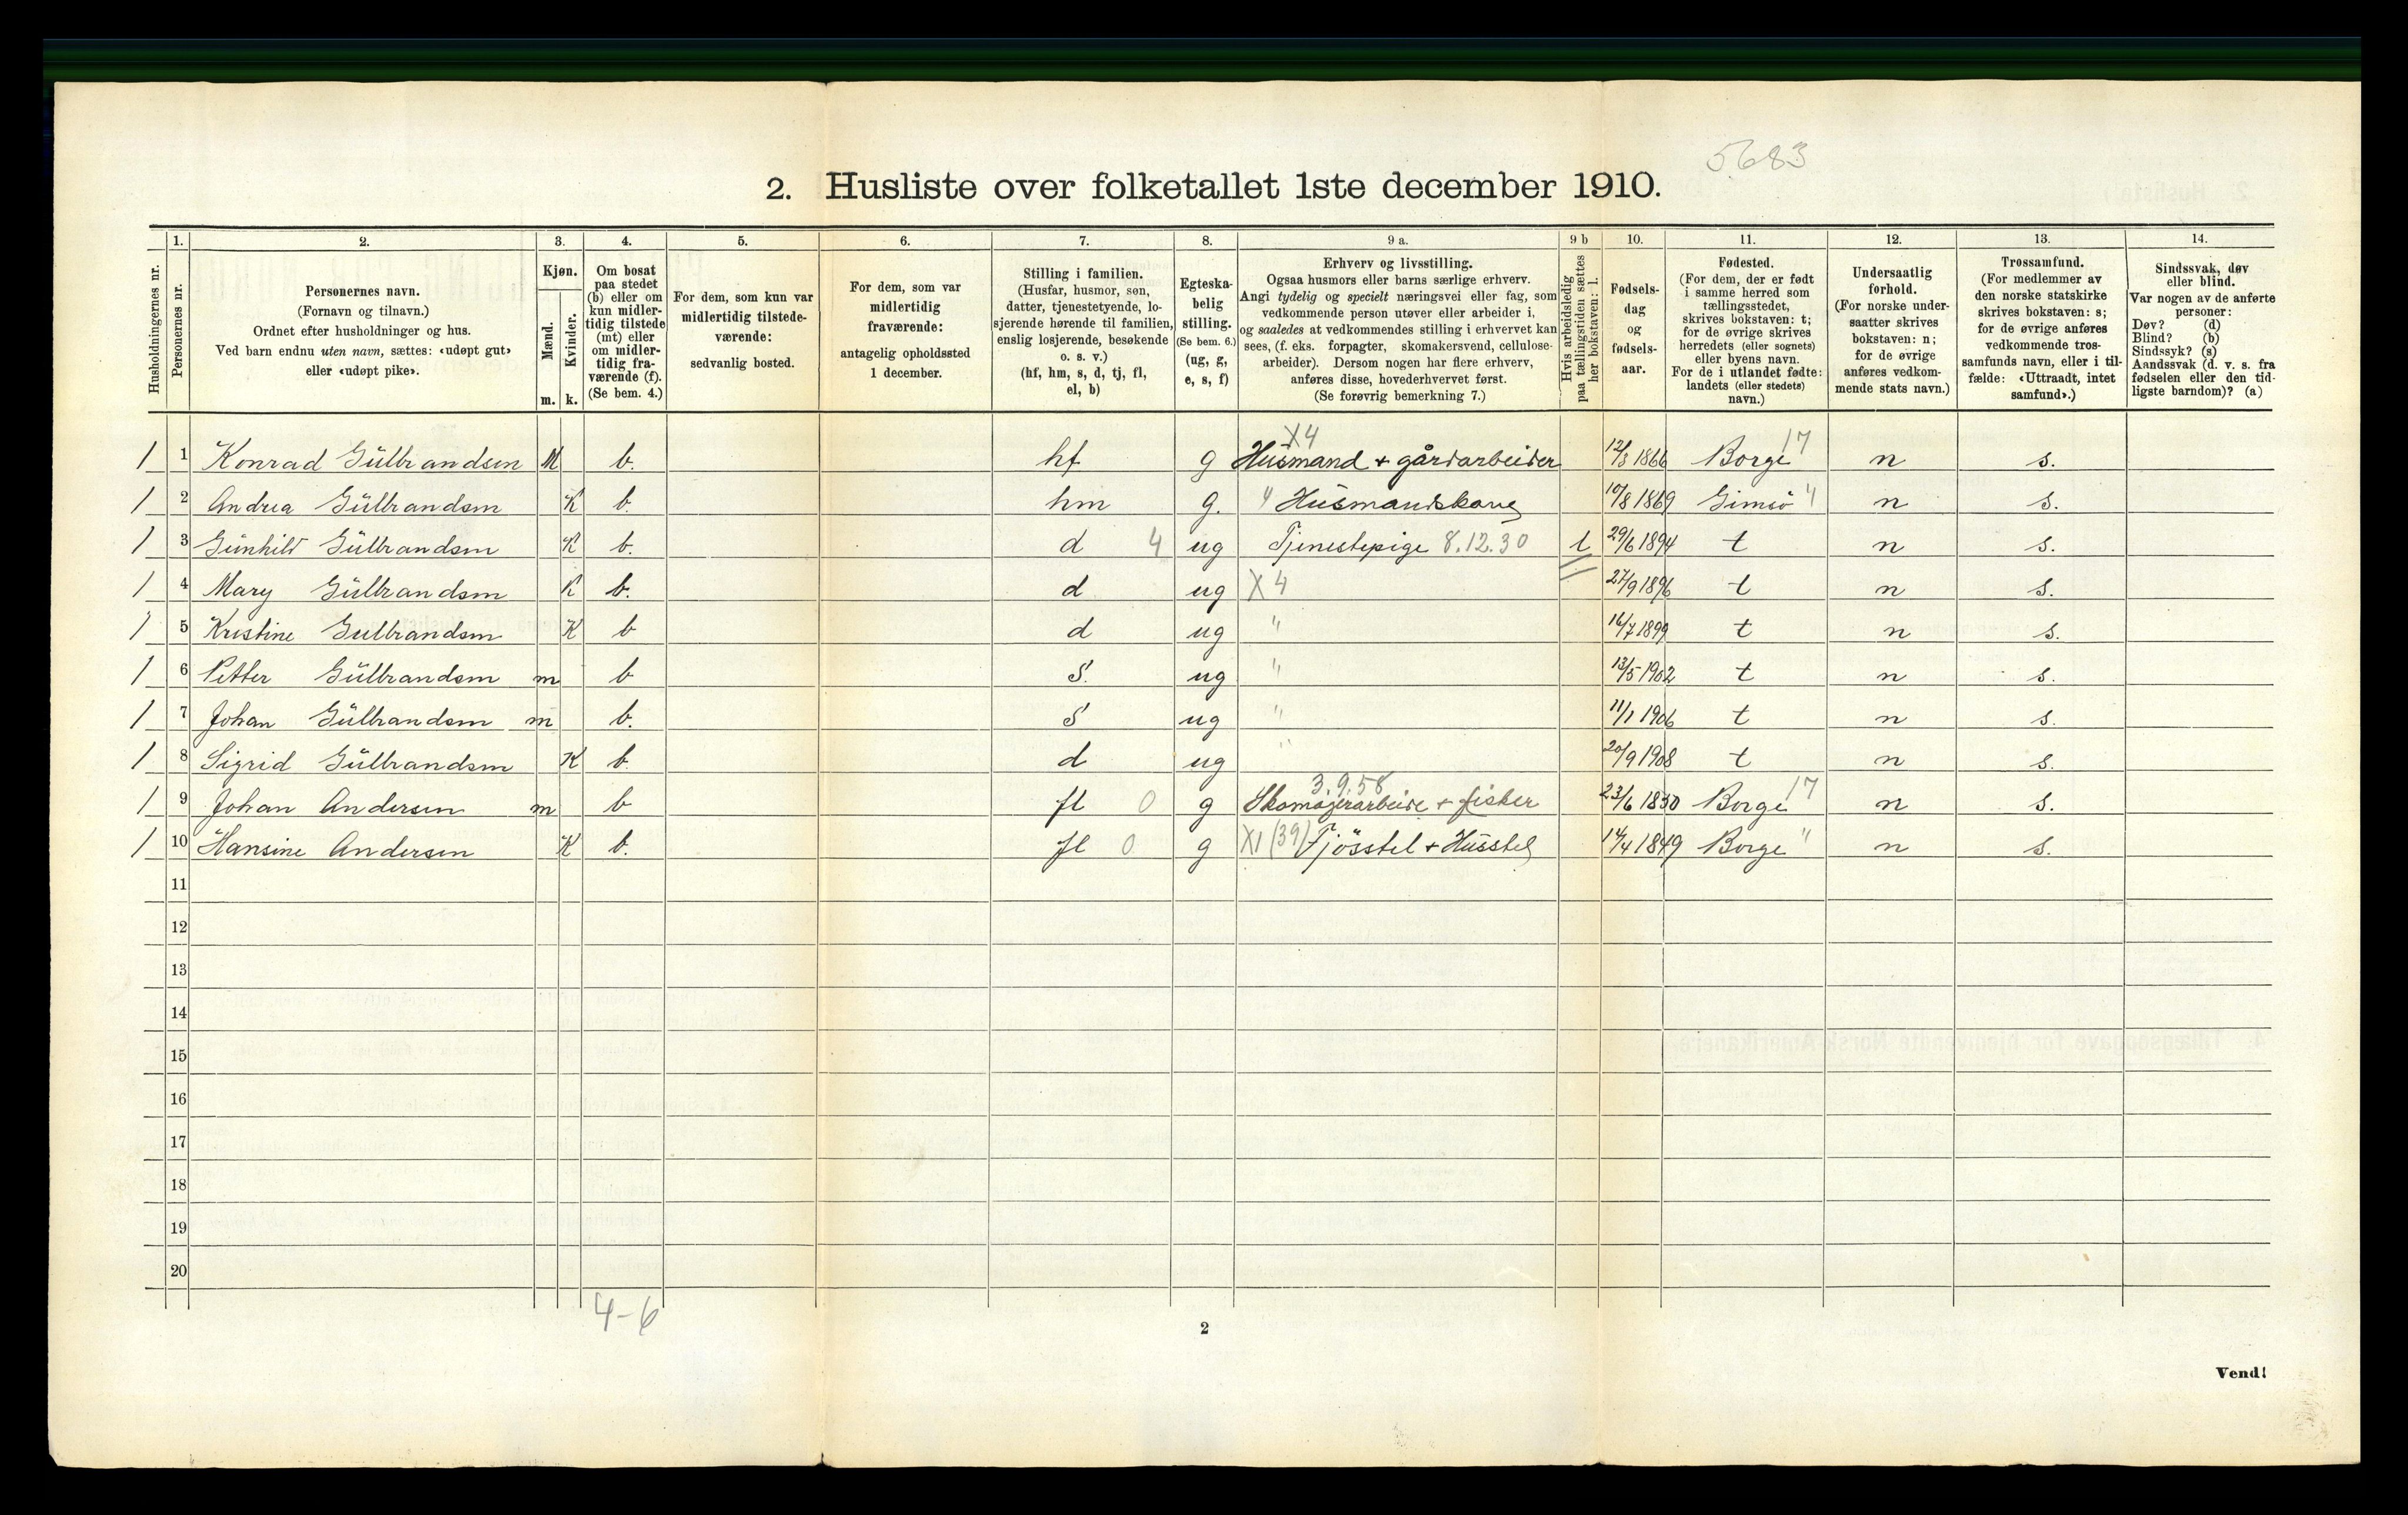 5683
2. Husliste over folketallet 1ste december 1910.
Husholdningernes nr.
1. 2. 3. 4. 5. 6. 7. 8. 9 a. 9 b 10. 11. 12. 13. 14.
Personernes nr.
Personernes navn.
(Fornavn og tilnavn.)
Ordnet efter husholdninger og hus.
Ved barn endnu uten navn, sættes: «udøpt gut»
eller «udøpt pike».
Kjøn.
Mænd.
Kvinder.
m. k.
Om bosat
paa stedet
(b) eller om
kun midler-
tidig tilstede
(mt) eller
om midler-
tidig fra-
værende (f).
(Se bem. 4.)
For dem, som kun var
midlertidig tilstede-
værende:
sedvanlig bosted.
For dem, som var
midlertidig
fraværende:
antagelig opholdssted
1 december.
Stilling i familien.
(Husfar, husmor, søn,
datter, tjenestetyende, lo-
sjerende hørende til familien,
enslig losjerende, besøkende
o. s. v.)
(hf, hm, s, d, tj, fl,
el, b)
Egteska-
belig
stilling.
(Se bem. 6.)
(ug, g,
e, s, f)
Erhverv og livsstilling.
Ogsaa husmors eller barns særlige erhverv.
Angi tydelig og specielt næringsvei eller fag, som
vedkommende person utøver eller arbeider i,
og saaledes at vedkommendes stilling i erhvervet kan
sees, (f. eks. forpagter, skomakersvend, cellulose-
arbeider). Dersom nogen har flere erhverv,
anføres disse, hovederhvervet først.
(Se forøvrig bemerkning 7.)
Hvis arbeidsledig
paa tællingstiden sættes
her bokstaven: l.
Fødsels-
dag
og
fødsels-
aar.
Fødested.
(For dem, der er født
i samme herred som
tællingsstedet,
skrives bokstaven: t;
for de øvrige skrives
herredets (eller sognets)
eller byens navn.
For de i utlandet fødte:
landets (eller stedets)
navn.)
Undersaatlig
forhold.
(For norske under-
saatter skrives
bokstaven: n;
for de øvrige
anføres vedkom-
mende stats navn.)
Trossamfund.
(For medlemmer av
den norske statskirke
skrives bokstaven: s;
for de øvrige anføres
vedkommende tros-
samfunds navn, eller i til-
fælde: «Uttraadt, intet
samfund».)
Sindssvak, døv
eller blind.
Var nogen av de anførte
personer:
Døv? (d)
Blind? (b)
Sindssyk? (s)
Aandssvak (d. v. s. fra
fødselen eller den tid-
ligste barndom)? (a)
X4 17
1 1 Konrad Gülbrandsen M b. hf g Husmand + gårdarbeider 12/3 1866 Borge n s.
1 2 Andrea Gülbrandsen K b. hm g. " Husmandskone 10/8 1869 Gimsö " n s.
1 3 Günhild Gülbrandsen K b. d 4 ug Tjenestepige 8.12.30 l 29/6 1894 t n s.
1 4 Mary Gülbrandsen K b. d ug X4 27/9 1896 t n s.
1 5 Kristine Gulbrandsen K b d ug " 16/7 1899 t n s.
1 6 Petter Gülbrandsen m b S. ug " 13/5 1902 t n s.
1 7 Johan Gülbrandsen m b. S ug " 11/1 1906 t n s.
1 8 Sigrid Gülbrandsen K b. d ug " 20/9 1908 t n s.
3.9.58 17
1 9 Johan Andersen m b fl 0 g Skomagerarbeide + fisker 23/6 1830 Borge n s.
1 10 Hansine Andersen K b. fl 0 g X1 (39) Fjösstel + Husstel 14/4 1849 Borge " n s.
11
12
13
14
15
16
17
18
19
20
4-6
2
Vend!